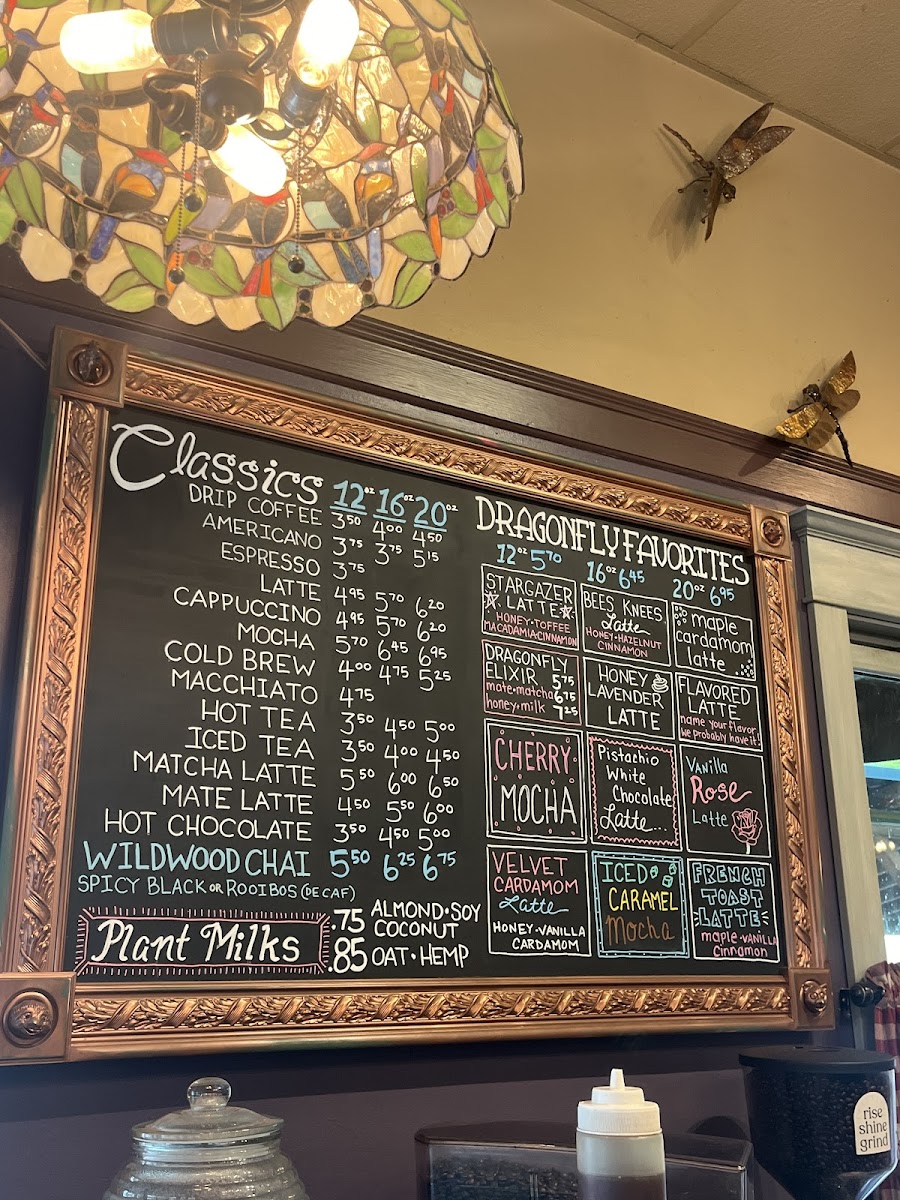 Classics 12oz 16oz 20oz
DRIP COFFEE 3.50 4.00 4.50
AMERICANO 3.75 3.75 5.15
ESPRESSO 3.75
LATTE 4.95 5.70 6.20
CAPPUCCINO 4.95 5.70 6.20
MOCHA 5.70 6.45 6.95
COLD BREW 4.00 4.75 5.25
MACCHIATO 4.75
HOT TEA 3.50 4.50 5.00
ICED TEA 3.50 4.00 4.50
MATCHA LATTE 5.50 6.00 6.50
MATE LATTE 4.50 5.50 6.00
HOT CHOCOLATE 3.50 4.50 5.00
WILDWOOD CHAI 5.50 6.25 6.75
SPICY BLACK OR ROOIBOS (DECAF)
Plant Milks
.75 ALMOND • SOY
COCONUT
.85 OAT • HEMP
DRAGONFLY FAVORITES
12oz 5.70 16oz 6.45 20oz 6.95
STARGAZER
LATTE
HONEY • TOFFEE
MACADAMIA • CINNAMON
BEES KNEES
Latte
HONEY • HAZELNUT
CINNAMON
maple
cardamom
latte
DRAGONFLY
ELIXIR 5.75
mate • matcha 6.75
honey • milk 7.25
HONEY &
LAVENDER
LATTE
FLAVORED
LATTE
name your flavor
we probably have it!
CHERRY
MOCHA
Pistachio
White
Chocolate
Latte...
Vanilla
Rose
Latte
VELVET
CARDAMOM
Latte
HONEY • VANILLA
CARDAMOM
ICED
CARAMEL
Mocha
FRENCH
TOAST
LATTE
maple • vanilla
cinnamon
rise
shine
grind